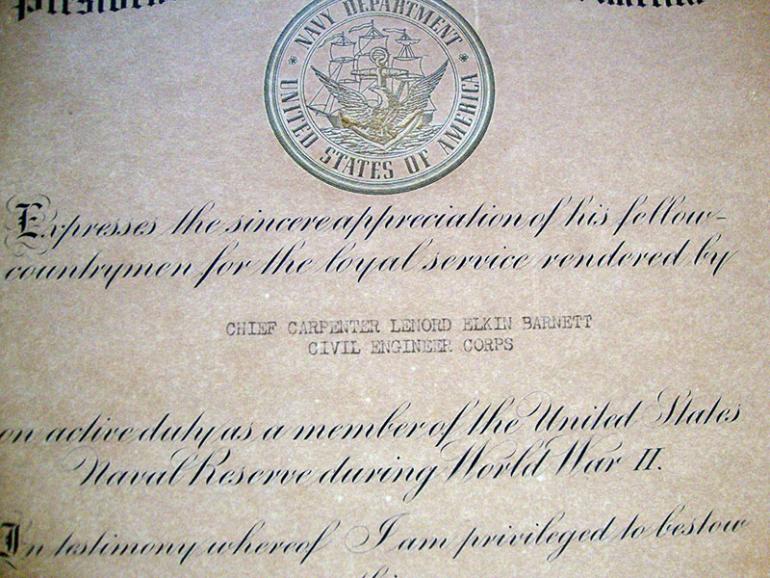 NAVY DEPARTMENT
UNITED STATES OF AMERICA
Expresses the sincere appreciation of his fellow-
countrymen for the loyal service rendered by
CHIEF CARPENTER LENORD ELKIN BARNETT
CIVIL ENGINEER CORPS
on active duty as a member of the United States
Naval Reserve during World War II.
In testimony whereof I am privileged to bestow